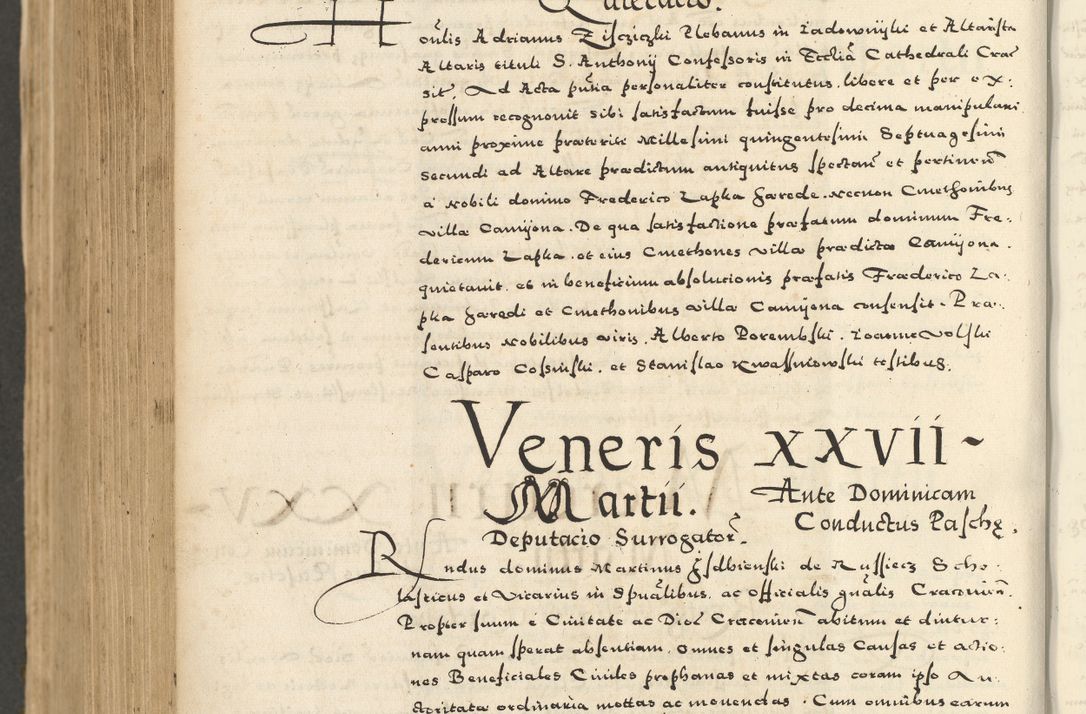 Quietacio.
Honĩlis Adrianus Ziscziczki Plebanus in Iadowniyki et Altarista
Altaris tituli S. Anthonij Confessoris in Ecclĩa Cathedrali Crac:
sit, Ad Acta pñtia personaliter constitutus, libere et per ex:
pressum recognouit sibi satisfactum fuisse pro decima manipulari
anni proxime præteriti Millesimi quingentesimi Septuagesimi
secundi ad Altare prædictum antiquitus spectañ et pertineñ
a Nobili domino Frederico Lapka hærede. Necnon Cmethonibus
villæ Camijona. De qua satisfactione præfatum dominum Fre:
dericum Lapka. et eius Cmethones villæ prædictæ Camijona.
quietauit. et in beneficium absolucionis præfatis Fræderico La:
pka hæredi et Cmethonibus villæ Camijona consensit. Præ:
sentibus Nobilibus viris. Alberto Porembski. Ioanne Wolski
Casparo Cossinski. et Stanislao Kwassniowski testibus.
Veneris XXVII
Martii. Ante Dominicam
Conductus Paschę.
Deputacio Surrogator̃.
Rndus dominus Martinus Izdbienski de Russiecz Scho:
lasticus et Vicarius in Spũalibus, ac Officialis gñalis Cracouieñ.
Propter suum e Ciuitate ac Dioc̃ Cracouieñ abitum et diutur:
nam quam sperat absentiam. Omnes et singulas Causas et actio:
nes Beneficiales Ciuiles prophanas et mixtas coram ipso Au:
ctoritate ordinaria mottas ac mouendas. Cum omnibus earum